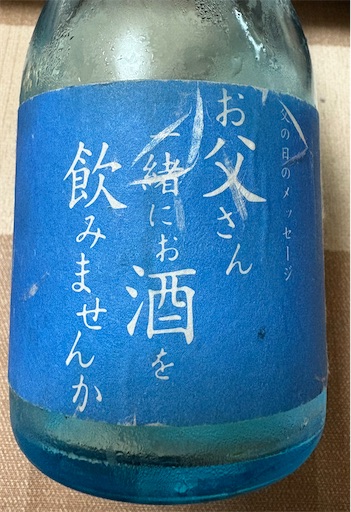 父の日のメッセージ
お父さん
一緒にお酒を
飲みませんか